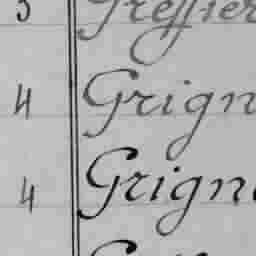 3 Greffier
4 Grign
4 Grign